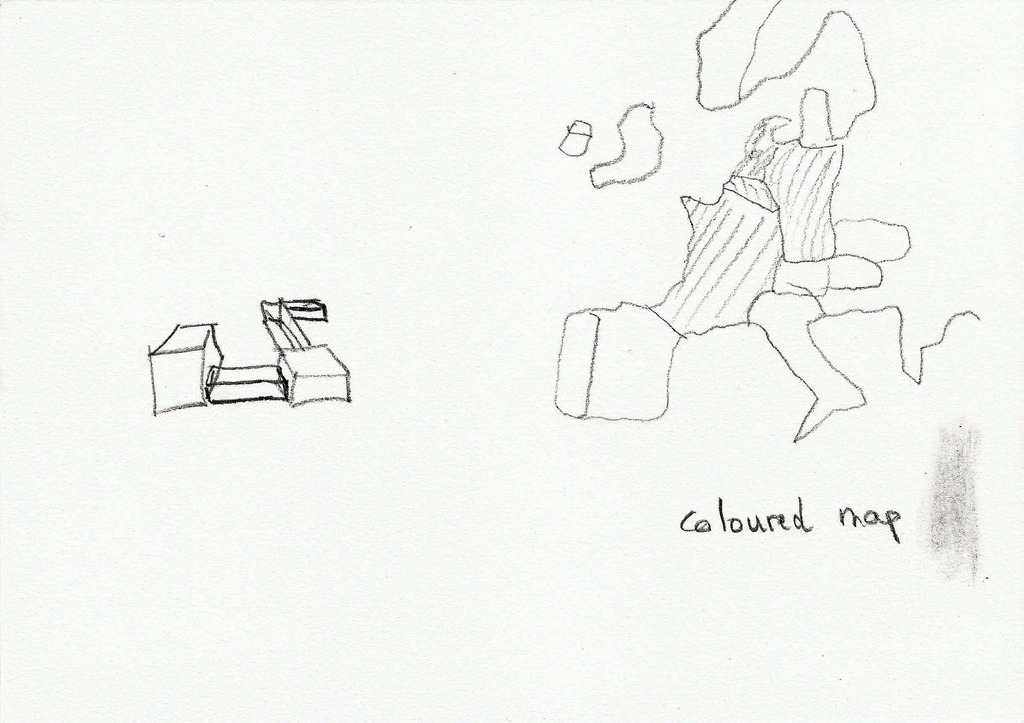 coloured map